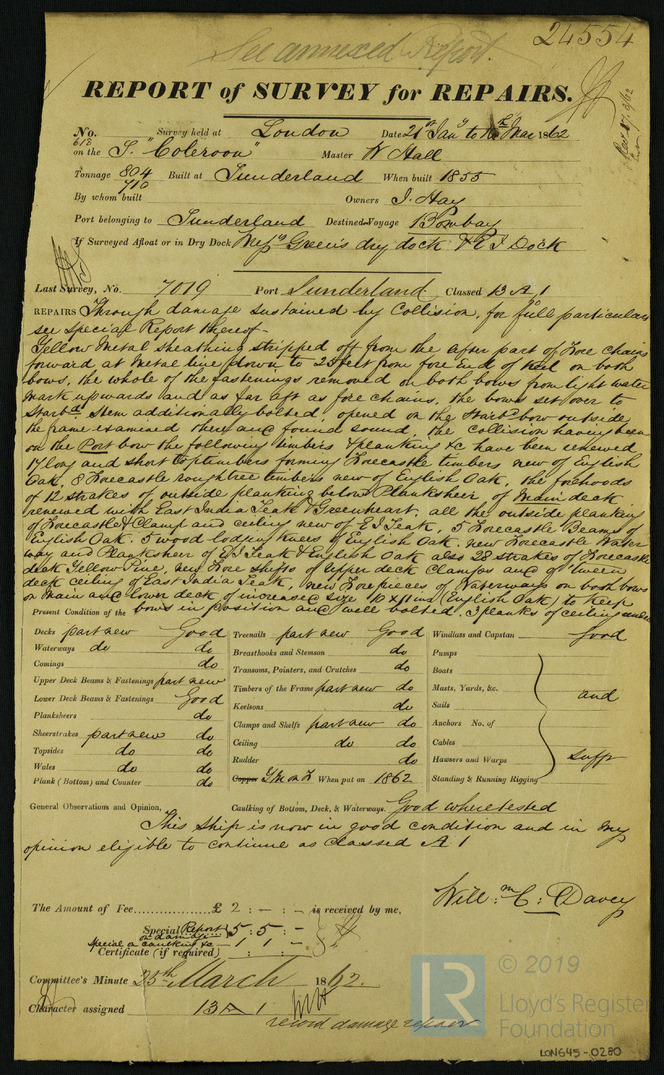 24554
See annexed Report.
REPORT of SURVEY for REPAIRS.
No. 618 Survey held at London Date 21st Jany to Mar 1862
on the S. "Coleroon" Master W Hall
Tonnage 804 710 Built at Sunderland When built 1855
By whom built Owners J. Hay
Port belonging to Sunderland Destined Voyage Bombay
If Surveyed Afloat or in Dry Dock Green's dry dock & Dock
Last Survey, No. 7019 Port Sunderland Classed 13 A 1
REPAIRS Through damage sustained by Collision, for full particulars
see special Report thereof-
Yellow Metal sheathing stripped off from the after part of Fore chains
forward at Metal line down to 25 feet from fore End of Keel on both
bows, the whole of the fastenings removed on both bows from light water
mark upwards and as far aft as fore chains, the bows set over to
Starbd Stem additionally bolted, opened on the Starbd bow outside
the frame examined there and found sound, the collision having been
on the Port bow the following timbers & planking &c have been renewed
17 long and short toptimbers forming Forecastle timbers new of English
Oak, 8 Forecastle roughtree timbers new of English Oak, the forehoods
of 12 strakes of outside planking below Planksheer of Main deck
renewed with East India Teak & Greenheart, all the outside planking
of Forecastle & Clamp and ceiling new of E I Teak, 5 Forecastle Beams of
English Oak. 5 wood lodging knees of English Oak. new Forecastle Water
way and Planksheer of E I Teak & English Oak also 28 strakes of Forecastle
deck Yellow Pine, new Fore shifts of upper deck Clamps and of 'tween
deck ceiling of East India Teak, new Forepieces of Waterways on both bows
on Main and lower deck of increased size 10 x 11 ins (English Oak) to keep
bows in position and well bolted. 3 planks of ceiling
Present Condition of the
Decks part new Good Treenails part new Good Windlass and Capstan good
Waterways do do Breasthooks and Stemson do Pumps
Comings do Transoms, Pointers, and Crutches do Boats
Upper Deck Beams & Fastenings part new Timbers of the Frame part new do Masts, Yards, &c. and
Lower Deck Beams & Fastenings Good Keelsons do Sails
Planksheers do Clamps and Shelfs part new do Anchors No. of
Sheerstrakes part new do Ceiling do do Cables
Topsides do do Rudder do Hawsers and Warps sufft
Wales do do Copper Y M on F When put on 1862 Standing & Running Rigging
Plank (Bottom) and Counter do
General Observations and Opinion, Caulking of Bottom, Deck, & Waterways. Good where tested
This ship is now in good condition and in my
opinion eligible to continue as classed A 1
Will:m C: Davey
The Amount of Fee............£ 2 : - : - is received by me,
Special Report on damage 5 : 5 : -
Special on caulking &c 1 : 1 : -
Certificate (if required)
Committee's Minute 25th March 1862.
Character assigned 13 A 1
record damage repair
LR © 2019
Lloyd's Register
Foundation
LON645-0280